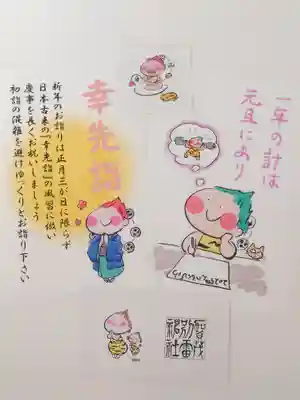 一年の計は
元旦にあり
幸先詣
新年のお詣りは正月三が日に限らず
日本古来の「幸先詣」の風習に倣い
慶事を長くお祝いしましょう
初詣の混雑を避けゆっくりとお詣り下さい
賀茂
別雷
神社